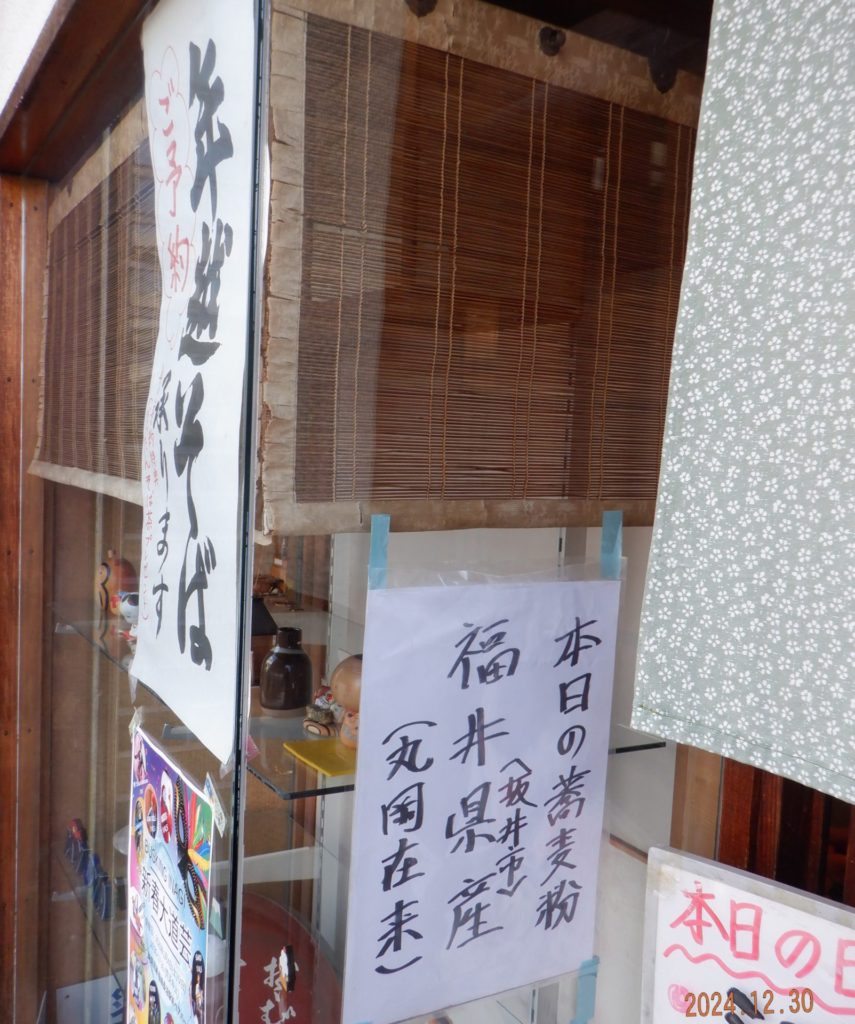 年越そば
ご予約
承ります
本日の蕎麦粉
福井県産
(坂井市)
(丸岡在来)
新春大道芸
本日の日
2024.12.30